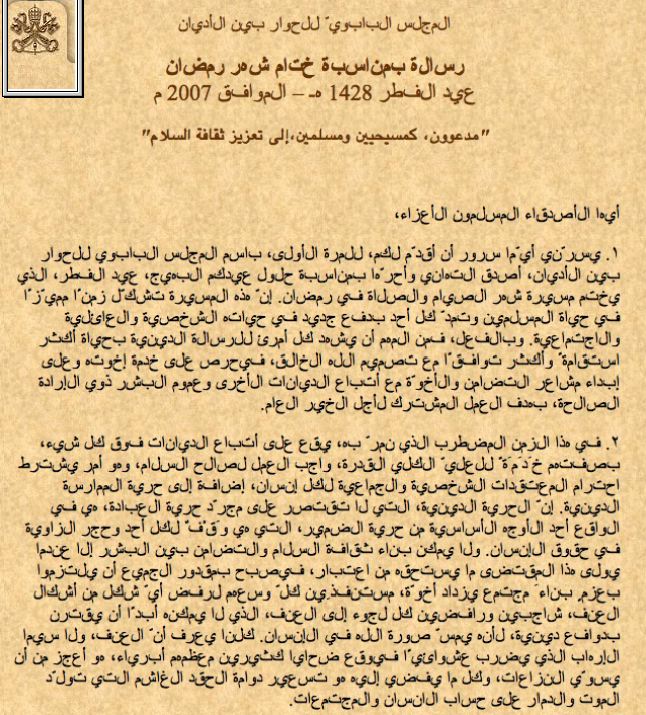 المجلس البابويّ للحوار بين الأديان
رسالة بمناسبة ختام شهر رمضان
عيد الفطر 1428 هـ – الموافق 2007 م
"مدعوون، كمسيحيين ومسلمين،إلى تعزيز ثقافة السلام"
أيها الأصدقاء المسلمون الأعزاء،
١. يسرّني أيّما سرور أن أقدّم لكم، للمرة الأولى، باسم المجلس البابوي للحوار
بين الأديان، أصدق التهاني وأحرّها بمناسبة حلول عيدكم البهيج، عيد الفطر، الذي
يختم مسيرة شهر الصيام والصلاة في رمضان. إنّ هذه المسيرة تشكّل زمنًا مميّزًا
في حياة المسلمين وتمدّ كل أحد بدفع جديد في حياته الشخصية والعائلية
والاجتماعية. وبالفعل، فمن المهم أن يشهد كل أمرئ للرسالة الدينية بحياة أكثر
استقامةً وأكثر توافقًا مع تصميم الله الخالق، فيحرص على خدمة إخوته وعلى
إبداء مشاعر التضامن والأخوّة مع أتباع الديانات الأخرى وعموم البشر ذوي الإرادة
الصالحة، بهدف العمل المشترك لأجل الخير العام.
٢. في هذا الزمن المضطرب الذي نمرّ به، يقع على أتباع الديانات فوق كل شيء،
بصفتهم خَدَمَة ً للعليّ الكلي القدرة، واجب العمل لصالح السلام، وهو أمر يشترط
احترام المعتقدات الشخصية والجماعية لكل إنسان، إضافة إلى حرية الممارسة
الدينية. إنّ الحرية الدينية، التي لا تقتصر على مجرّد حرية العبادة، هي في
الواقع أحد الأوجه الأساسية من حرية الضمير، التي هي وَقْفٌ لكل أحد وحجر الزاوية
في حقوق الإنسان. ولا يمكن بناء ثقافة السلام والتضامن بين البشر إلا عندما
يولى هذا المقتضى ما يستحقه من اعتبار، فيصبح بمقدور الجميع أن يلتزموا
بعزم بناءَ مجتمع يزداد أخوّة، مستنفذين كلّ وسعهم لرفض أيّ شكل من أشكال
العنف، شاجبين ورافضين كل لجوء إلى العنف، الذي لا يمكنه أبدًا أن يقترن
بدوافع دينية، لأنه يمسّ صورة الله في الإنسان. كلنا يعرف أنّ العنف، ولا سيما
الإرهاب الذي يضرب عشوائيًا فيوقع ضحايا كثيرين معظمهم أبرياء، هو أعجز من أن
يسوّي النزاعات، وكل ما يفضي إليه هو تسعير دوامة الحقد الغاشم التي تولّد
الموت والدمار على حساب الانسان والمجتمعات.